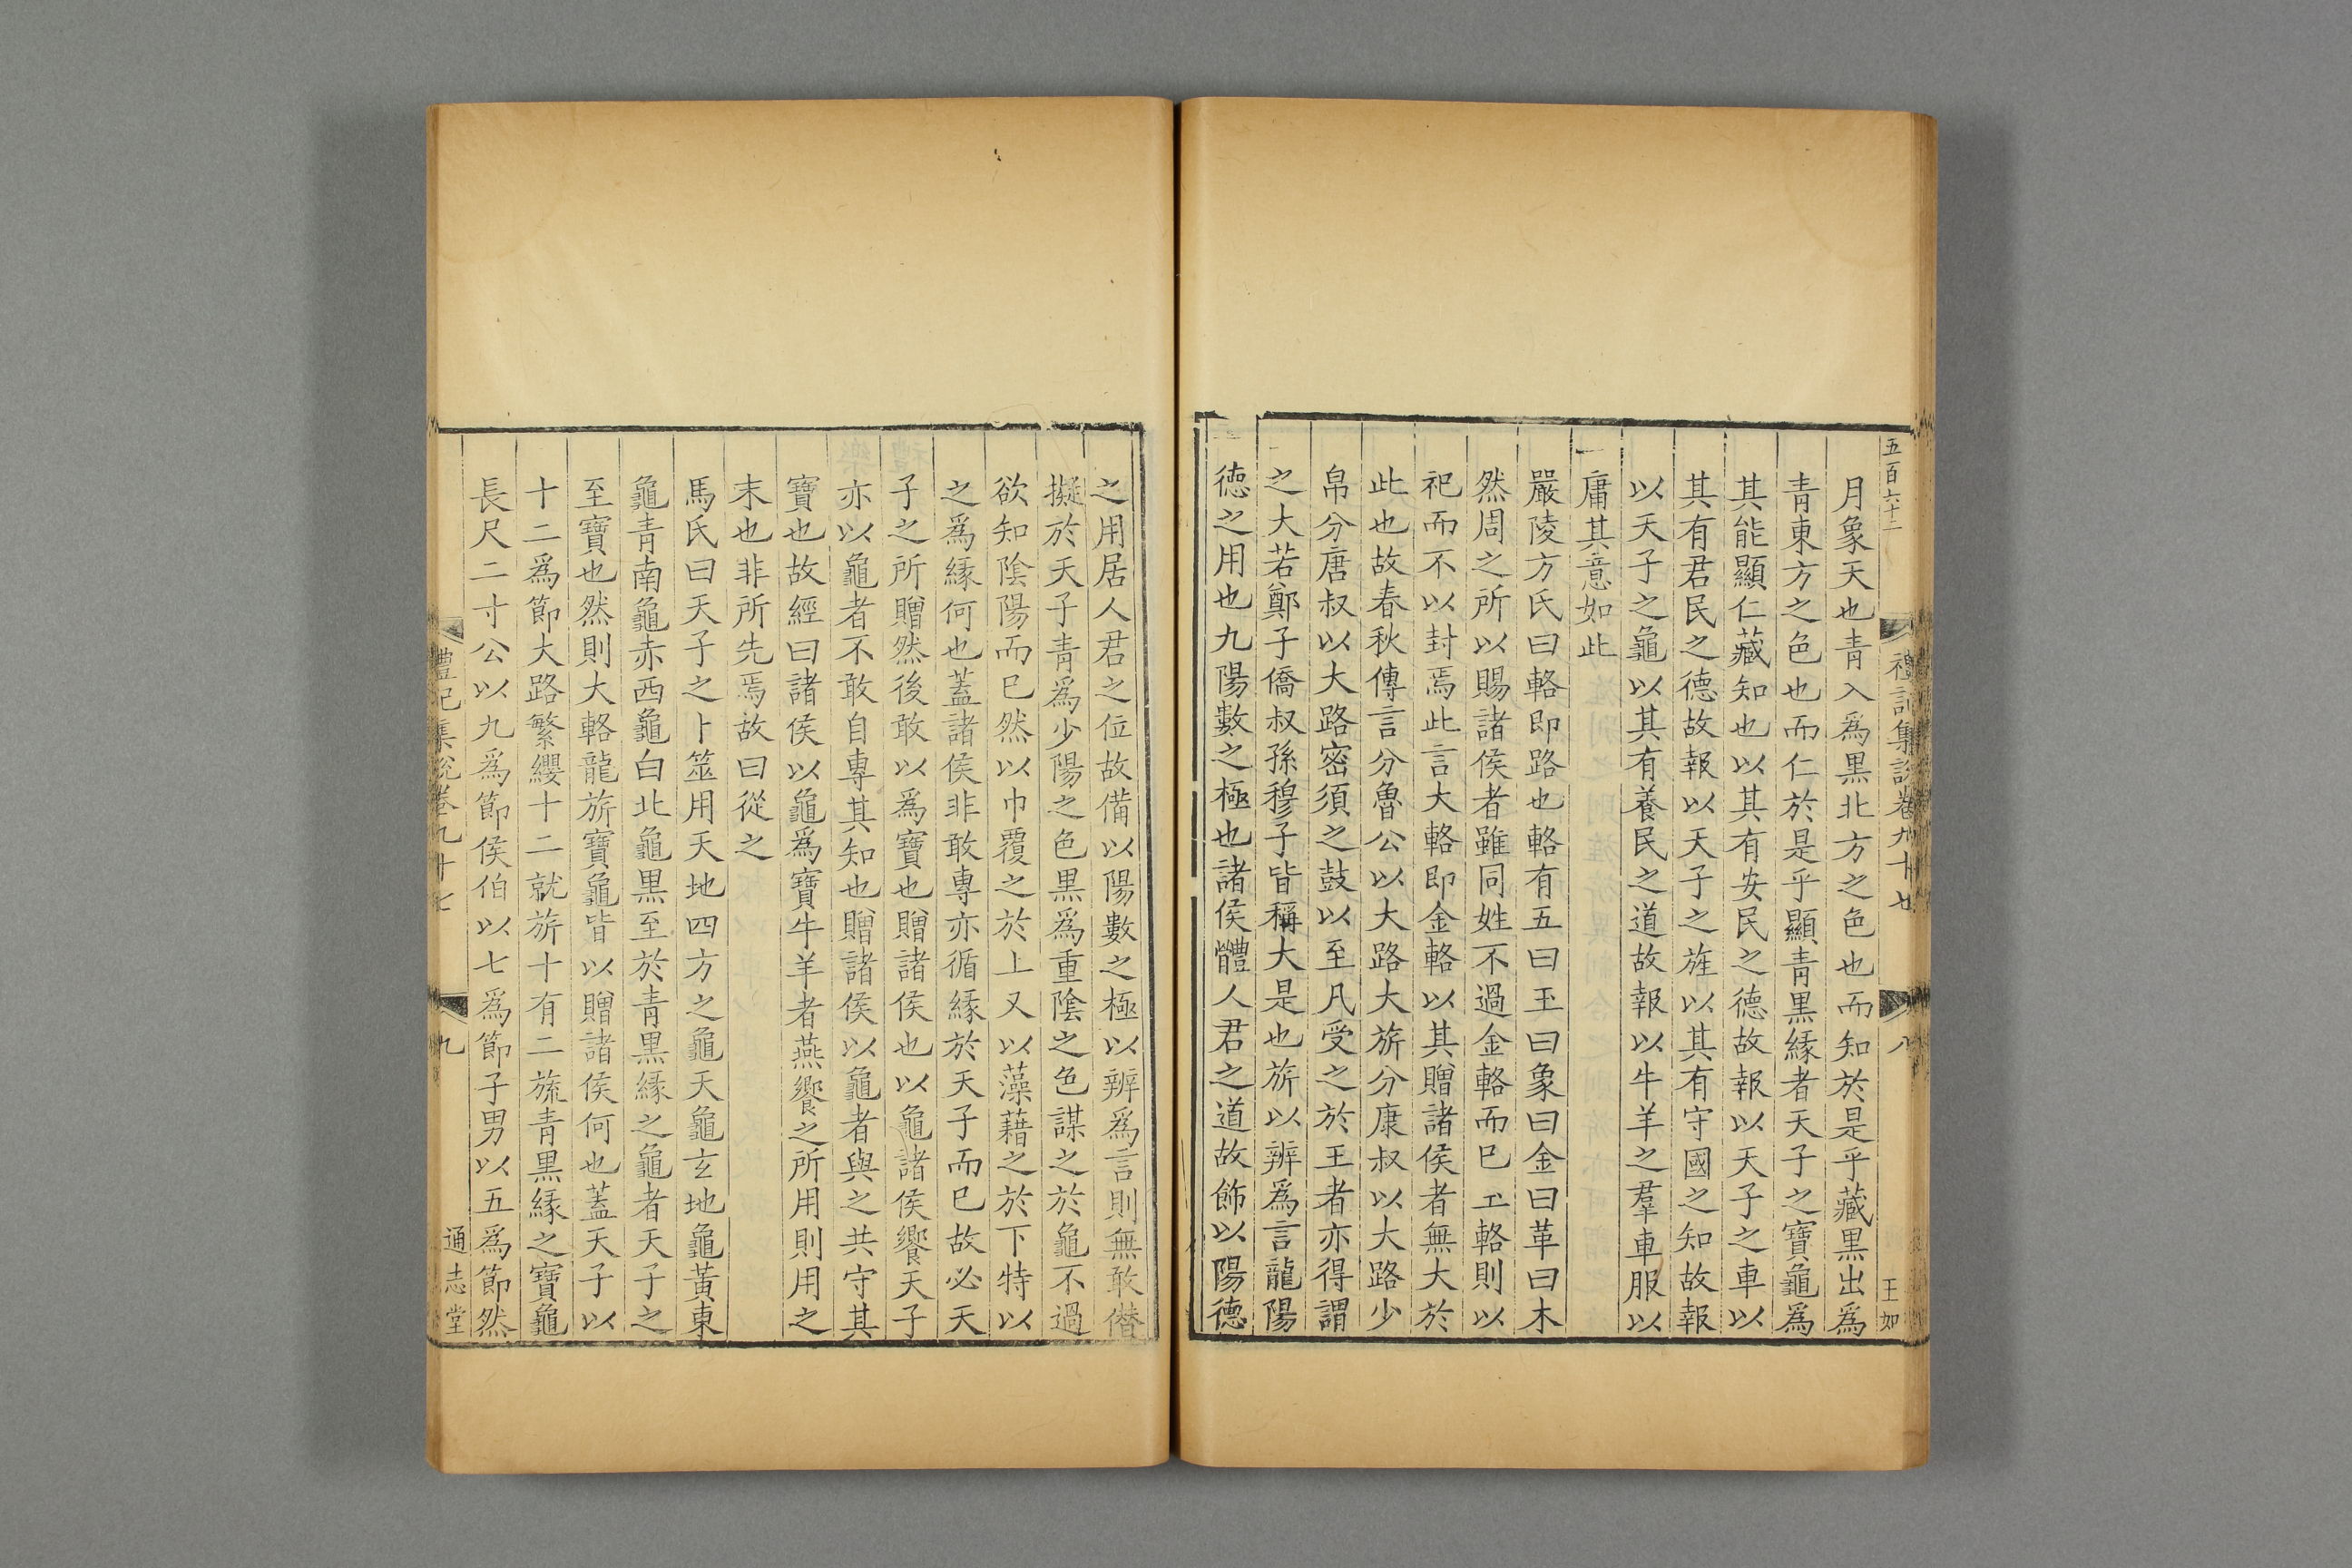 五百六十二
禮記集說卷九十七
八
王如
月象天也青入爲黑北方之色也而知於是乎藏黑出爲
青東方之色也而仁於是乎顯青黑緣者天子之寶龜爲
其能顯仁藏知也以其有安民之德故報以天子之車以
其有君民之德故報以天子之旌以其有守國之知故報
以天子之龜以其有養民之道故報以牛羊之羣車服以
庸其意如此
嚴陵方氏曰輅即路也輅有五曰玉曰象曰金曰革曰木
然周之所以賜諸侯者雖同姓不過金輅而已玉輅則以
祀而不以封焉此言大輅即金輅以其贈諸侯者無大於
此也故春秋傳言分魯公以大路大旂分康叔以大路少
帛分唐叔以大路密須之鼓以至凡受之於王者亦得謂
之大若鄭子僑叔孫穆子皆稱大是也旂以辨爲言龍陽
德之用也九陽數之極也諸侯體人君之道故飾以陽德
之用居人君之位故備以陽數之極以辨爲言則無敢僭
擬於天子青爲少陽之色黑爲重陰之色謀之於龜不過
欲知陰陽而已然以巾覆之於上又以藻藉之於下特以
之爲緣何也蓋諸侯非敢專亦循緣於天子而已故必天
子之所贈然後敢以爲寶也贈諸侯也以龜諸侯饗天子
亦以龜者不敢自專其知也贈諸侯以龜者與之共守其
寶也故經曰諸侯以龜爲寶牛羊者燕饗之所用則用之
末也非所先焉故曰從之
馬氏曰天子之卜筮用天地四方之龜天龜玄地龜黃東
龜青南龜赤西龜白北龜黑至於青黑緣之龜者天子之
至寶也然則大輅龍旂寶龜皆以贈諸侯何也蓋天子以
十二爲節大路繁纓十二就旂十有二旒青黑緣之寶龜
長尺二寸公以九爲節侯伯以七爲節子男以五爲節然
禮記集說卷九十七
九
通志堂